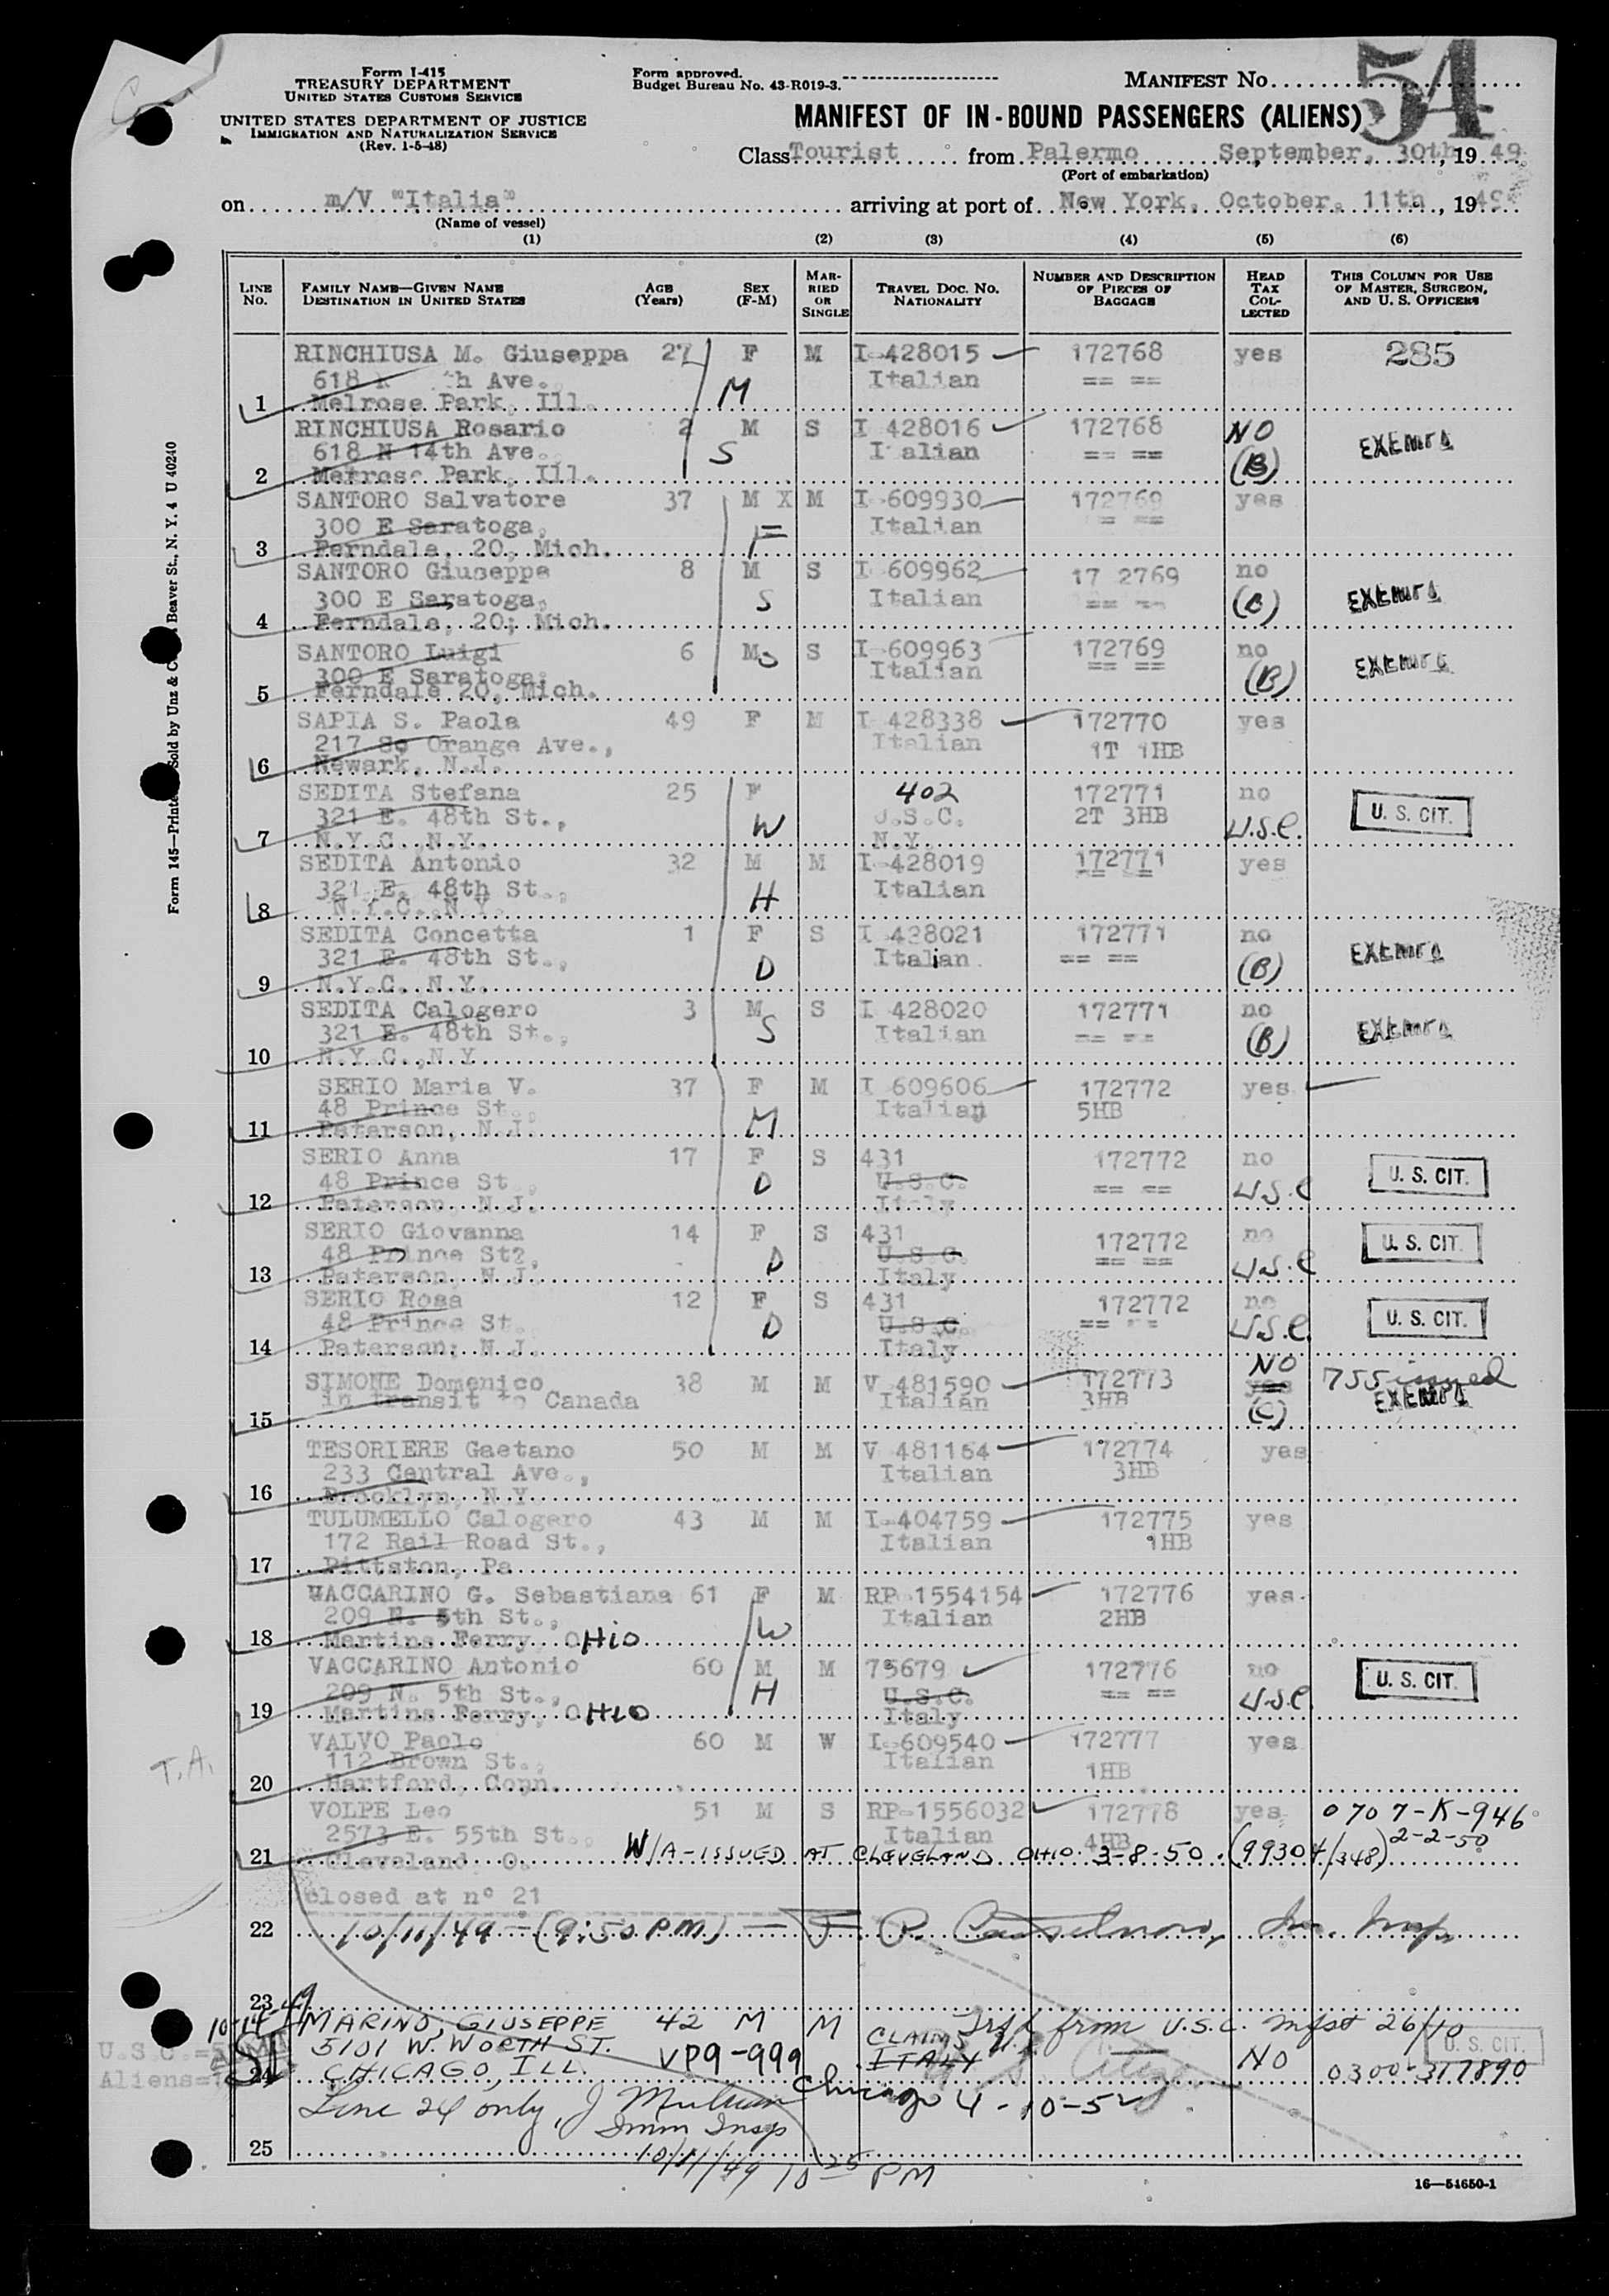 Form I-415
TREASURY DEPARTMENT
UNITED STATES CUSTOMS SERVICE
UNITED STATES DEPARTMENT OF JUSTICE
IMMIGRATION AND NATURALIZATION SERVICE
(Rev. 1-5-48)
Form approved.
Budget Bureau No. 43-R019-3.
MANIFEST No. 54
MANIFEST OF IN-BOUND PASSENGERS (ALIENS)
Class Tourist from Palermo September, 30th, 1949
(Port of embarkation)
on m/V "Italia" arriving at port of New York, October, 11th, 1949
(Name of vessel)
(1) (2) (3) (4) (5) (6)
LINE No. FAMILY NAME—GIVEN NAME DESTINATION IN UNITED STATES AGE (Years) SEX (F-M) MARRIED OR SINGLE TRAVEL DOC. NO. NATIONALITY NUMBER AND DESCRIPTION OF PIECES OF BAGGAGE HEAD TAX COLLECTED THIS COLUMN FOR USE OF MASTER, SURGEON, AND U. S. OFFICERS
RINCHIUSA M. Giuseppa 27 F M I-428015 172768 yes 285
618 h Ave. Italian == ==
1 Melrose Park, Ill. M
RINCHIUSA Rosario 2 M S I 428016 172768 NO
618 N 14th Ave. S Italian == == (B) EXEMPT
2 Metrose Park, Ill.
SANTORO Salvatore 37 M X M I-609930 172769 yes
300 E Saratoga, F Italian = ==
3 Ferndale, 20, Mich.
SANTORO Giuseppe 8 M S I 609962 17 2769 no
300 E Saratoga, S Italian == == (B) EXEMPT
4 Ferndale, 20; Mich.
SANTORO Luigi 6 M S S I-609963 172769 no
300 E Saratoga; Italian == == (B) EXEMPT
5 Ferndale 20, Mich.
SAPIA S. Paola 49 F M I 428338 172770 yes
217 So Orange Ave., Italian 1T 1HB
6 Newark, N.J.
SEDITA Stefana 25 F 402 172771 no
321 E. 48th St., W U.S.C. 2T 3HB U.S.C. U. S. CIT.
7 N.Y.C.,N.Y. N.Y.
SEDITA Antonio 32 M M I-428019 172771 yes
321 E. 48th St., H Italian == ==
8 N.Y.C.,N.Y.
SEDITA Concetta 1 F S I 428021 172771 no
321 E. 48th St., D Italian == == (B) EXEMPT
9 N.Y.C., N.Y.
SEDITA Calogero 3 M S I 428020 172771 no
321 E. 48th St., S Italian == == (B) EXEMPT
10 N.Y.C.,N.Y.
SERIO Maria V. 37 F M I 609606 172772 yes
48 Prince St. Italian 5HB
11 Paterson, N.J. M
SERIO Anna 17 F S 431 172772 no
48 Prince St., D U.S.C. == == U.S.C U. S. CIT.
12 Paterson, N.J. Italy
SERIO Giovanna 14 F S 431 172772 no
48 Prince St?, D U.S.C. == == U.S.C U. S. CIT.
13 Paterson, N.J. Italy
SERIO Rosa 12 F S 431 172772 no
48 Prince St. D U.S.C. == == U.S.C. U. S. CIT.
14 Paterson; N.J. Italy
SIMONE Domenico 38 M M V 481590 172773 NO yes 755 issued
in transit to Canada Italian 3HB (C) EXEMPT
15
TESORIERE Gaetano 50 M M V 481164 172774 yes
233 Central Ave., Italian 3HB
16 Brooklyn, N.Y
TULUMELLO Calogero 43 M M I-404759 172775 yes
172 Rail Road St., Italian 1HB
17 Pittston, Pa
VACCARINO G. Sebastiana 61 F M RP-1554154 172776 yes
209 N. 5th St., W Italian 2HB
18 Martins Ferry, OHIO
VACCARINO Antonio 60 M M 75679 172776 no
209 N. 5th St., H U.S.C. == == U.S.C. U. S. CIT.
19 Martins Ferry, OHIO Italy
VALVO Paolo 60 M W I-609540 172777 yes
112 Brown St., Italian 1HB
T.A.
20 Hartford, Conn.
VOLPE Leo 51 M S RP-1556032 172778 yes 0707-K-946
2573 E. 55th St., Italian 4HB 2-2-50
21 Cleveland, O. W/A-ISSUED AT CLEVELAND OHIO 3-8-50. (99304/348)
closed at n° 21
22 10/11/49 — (9:50 PM) — Im. Insp.
23
MARINO, GIUSEPPE 42 M M CLAIMS U.S. Trsf. from U.S.C. mfst 26/10
5101 W. WORTH ST. VP9-999 ITALY Citizen NO U. S. CIT.
24 CHICAGO, ILL. 0300-317890
Chicago 4-10-52
U.S.C.=
Aliens=
SI
Line 24 only, J
Imm Insp
25
10/11/49 10 25 PM
Form 145—Printed Sold by Unz & Co. Beaver St., N. Y. 4 U 40240
16—54650-1